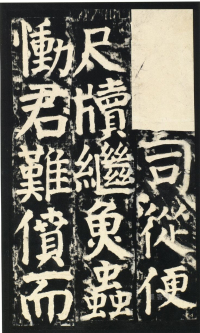 司從便
尺牘繼魚蟲
慟君難償而